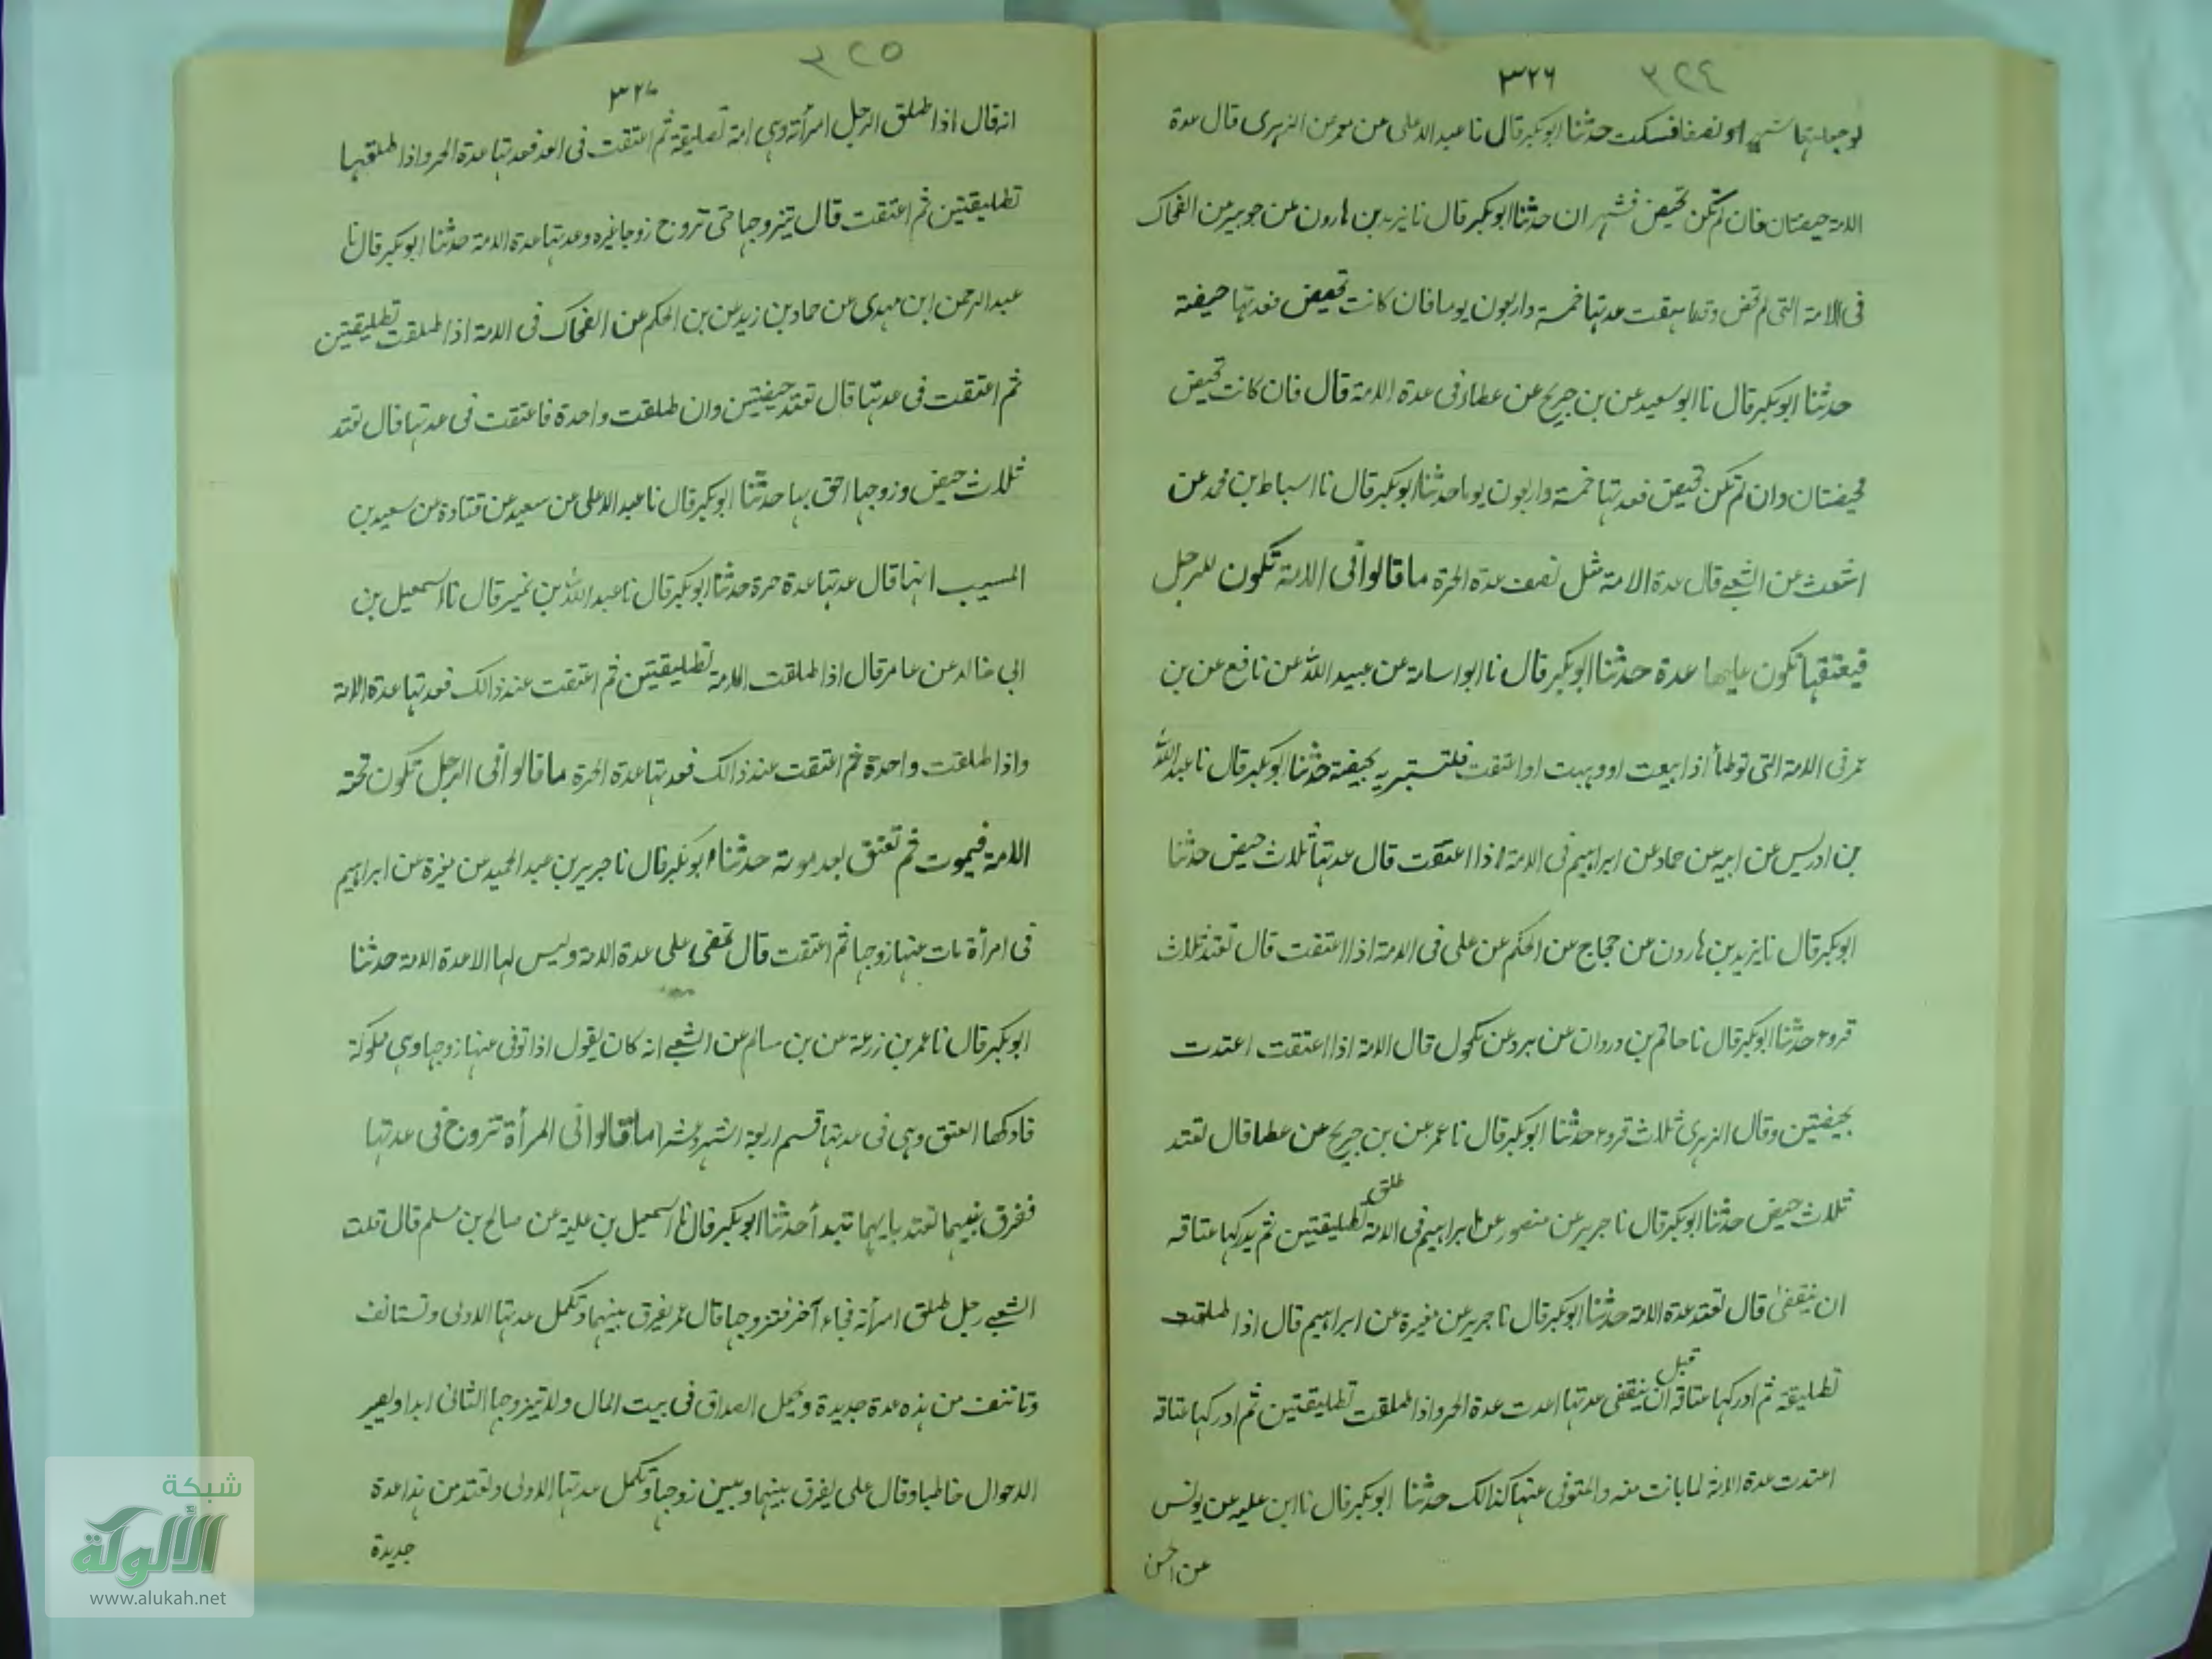 ٣٢٤
٣٢٦
لو جعلتها شهرا ونصفا فسكت حدثنا ابو بكر قال نا عبد الاعلى عن معمر عن الزهرى قال عدة
الامة حيضتان فان لم تكن تحيض فشهران حدثنا ابو بكر قال نا يزيد بن هارون عن جويبر عن الضحاك
فى الامة التى لم تحض وقعا سقت عدتها خمسة واربعون يوما فان كانت تحيض فعدتها حيضة
حدثنا ابو بكر قال نا ابو سعيد عن بن جريج عن عطاء فى عدة الامة قال فان كانت تحيض
فحيضتان وان لم تكن تحيض فعدتها خمسة واربعون يوما حدثنا ابو بكر قال نا اسباط بن محمد عن
اشعث عن الشعبے قال عدة الامة مثل نصف عدة الحرة ما قالوا فى الامة تكون للرجل
فيعتقها تكون عليها عدة حدثنا ابو بكر قال نا ابو اسامة عن عبيد الله عن نافع عن بن
عمر فى الامة التى توطأ اذا بيعت او وهبت او اعتقت فلتستبريه بحيضة حدثنا ابو بكر قال نا عبد الله
بن ادريس عن ابيه عن حماد عن ابراهيم فى الامة اذا اعتقت قال عدتها ثلاث حيض حدثنا
ابو بكر قال نا يزيد بن هارون عن حجاج عن الحكم عن على فى الامة اذا اعتقت قال تعتد ثلاث
قروء حدثنا ابو بكر قال نا حاتم بن وردان عن برد عن مكحول قال الامة اذا اعتقت اعتدت
بحيضتين وقال الزهرى ثلاث قروء حدثنا ابو بكر قال نا عمر عن بن جريج عن عطا قال تعتد
ثلاث حيض حدثنا ابو بكر قال نا جرير عن منصور عن ابراهيم فى الامة طلق تطليقتين ثم يدركها عتاقه
ان ينقضى قال تعتد عدة الامة حدثنا ابو بكر قال نا جرير عن مغيرة عن ابراهيم قال اذا طلقت
تطليقة ثم ادركها عتاقه قبل ان ينقضى عدتها اعدت عدة الحر واذا طلقت تطليقتين ثم ادركها عتاقه
اعتدت عدة الامة لما بانت منه والمتوفى عنها كذالك حدثنا ابو بكر قال نا ابن عليه عن يونس
عن الحسن
٣٢٥
٣٢٧
انه قال اذا طلق الرجل امرأته وهى امة تطليقة ثم اعتقت فى العد فعدتها عدة الحر واذا طلقها
تطليقتين ثم اعتقت قال يتزوجها حتى تزوج زوجا غيره وعدتها عدة الامة حدثنا ابو بكر قال نا
عبد الرحمن ابن مهدى عن حماد بن زيد عن بن الحكم عن الضحاك فى الامة اذا طلقت تطليقتين
ثم اعتقت فى عدتها قال تعتد حيضتين وان طلقت واحدة فاعتقت فى عدتها قال تعتد
ثلاث حيض وزوجها احق بها حدثنا ابو بكر قال نا عبد الاعلى عن سعيد عن قتادة عن سعيد بن
المسيب انها قال عدتها عدة حرة حدثنا ابو بكر قال نا عبد الله بن نمير قال نا اسمعيل بن
ابى خالد عن عامر قال اذا طلقت الامة تطليقتين ثم اعتقت عند ذالك فعدتها عدة الامة
واذا طلقت واحدة ثم اعتقت عند ذالك فعدتها عدة الحرة ما قالوا فى الرجل تكون تحته
الامة فيموت ثم تعتق بعد موته حدثنا ابو بكر قال نا جرير بن عبد الحميد عن مغيرة عن ابراهيم
فى امرأة مات عنها زوجها ثم اعتقت قال تمضى على عدة الامة وليس لها الا عدة الامة حدثنا
ابو بكر قال نا عمر بن زرعة عن بن سالم عن الشعبے انه كان يقول اذا توفى عنها زوجها وهى مملوكة
فادركها العتق وهى فى عدتها قسم اربعة اشهر وعشرا ما قالوا فى المرأة تزوج فى عدتها
ففرق بينهما تعتد بايهما تبدأ حدثنا ابو بكر قال نا اسمعيل بن علية عن صالح بن مسلم قال قلت
الشعبے رجل طلق امرأته فجاء آخر فتزوجها قال عمر يفرق بينهما وتكمل عدتها الاولى وتستانف
وتاتنف من هذه عدة جديدة ويجعل الصداق فى بيت المال ولا يتزوجها الثانى ابدا ويصير
الاحوال خاطبا وقال على يفرق بينهما وبين زوجها وتكمل عدتها الاولى وتعتد من هذا عدة
جديدة
شبكة
الألوكة
www.alukah.net